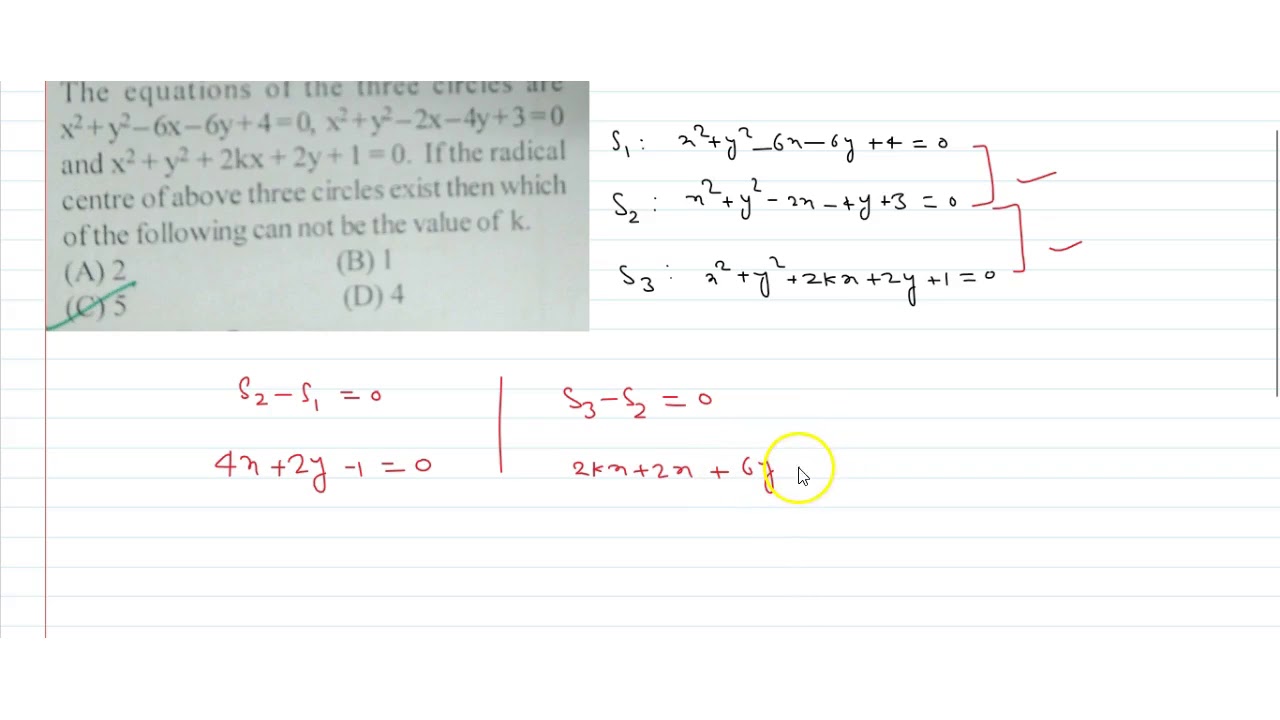 The equations of the three circles are
x²+y²−6x−6y+4=0, x²+y²−2x−4y+3=0
and x² + y² + 2kx + 2y + 1 = 0. If the radical
centre of above three circles exist then which
of the following can not be the value of k.
(A) 2 (B) 1
(C) 5 (D) 4
S₁ : x²+y²−6x−6y+4=0
S₂ : x²+y²−2x−4y+3=0
S₃ : x²+y²+2kx+2y+1=0
S₂−S₁=0 S₃−S₂=0
4x+2y−1=0 2kx+2x+6y